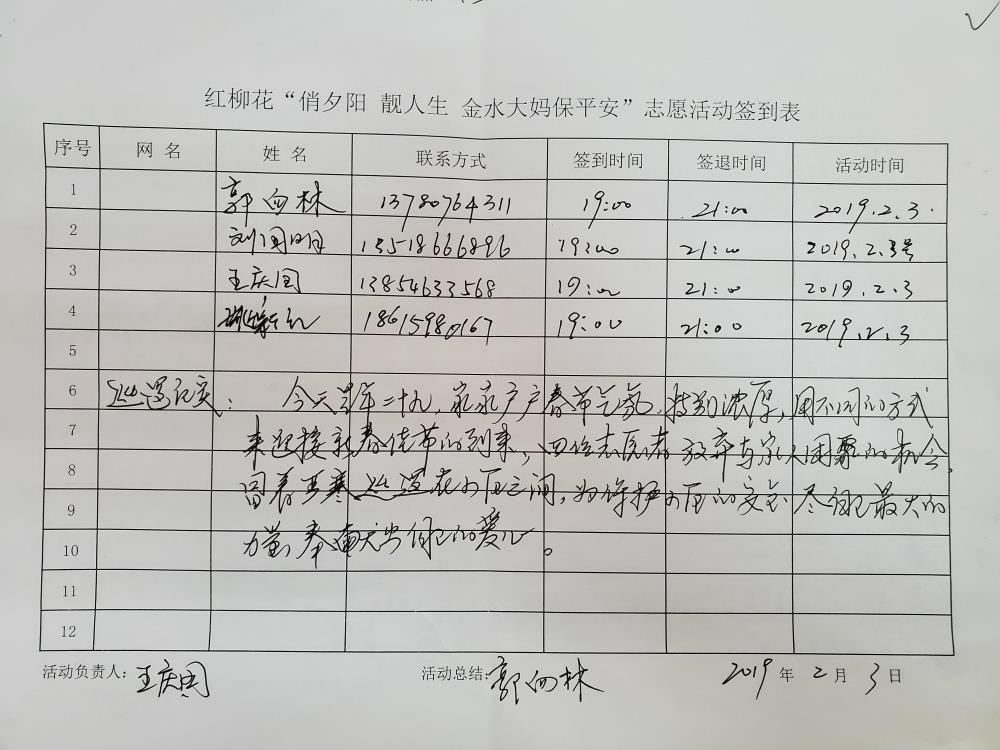 红柳花“俏夕阳 靓人生 金水大妈保平安”志愿活动签到表
序号 网 名 姓 名 联系方式 签到时间 签退时间 活动时间
1 郭向林 13780764311 19:00 21:00 2019.2.3.
2 刘国明 13518666896 19:00 21:00 2019.2.3号
3 王庆国 13854633568 19:00 21:00 2019.2.3
4 18615980167 19:00 21:00 2019.2.3
5
6 巡逻纪实: 今天是年二十九,家家户户春节气氛,特别浓厚,用不同的方式
7 来迎接新春佳节的到来,四位志愿者放弃与家人团聚的机会,
8 冒着严寒巡逻在小区之间,为维护小区的安全尽自己最大的
9
10 力量,奉献出自己的爱心。
11
12
活动负责人: 王庆国 活动总结: 郭向林 2019 年 2 月 3 日